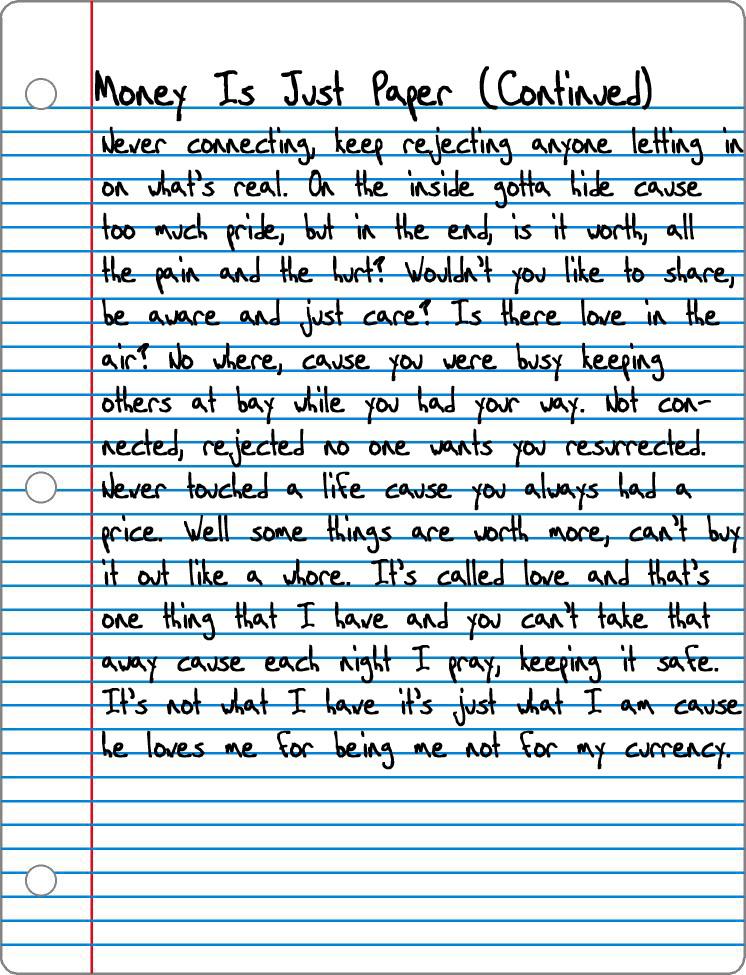 Money Is Just Paper (Continued)
Never connecting, keep rejecting anyone letting in
on what's real. On the inside gotta hide cause
too much pride, but in the end, is it worth, all
the pain and the hurt? Wouldn't you like to share,
be aware and just care? Is there love in the
air? No where, cause you were busy keeping
others at bay while you had your way. Not con-
nected, rejected no one wants you resurrected.
Never touched a life cause you always had a
price. Well some things are worth more, can't buy
it out like a whore. It's called love and that's
one thing that I have and you can't take that
away cause each night I pray, keeping it safe.
It's not what I have it's just what I am cause
he loves me for being me not for my currency.